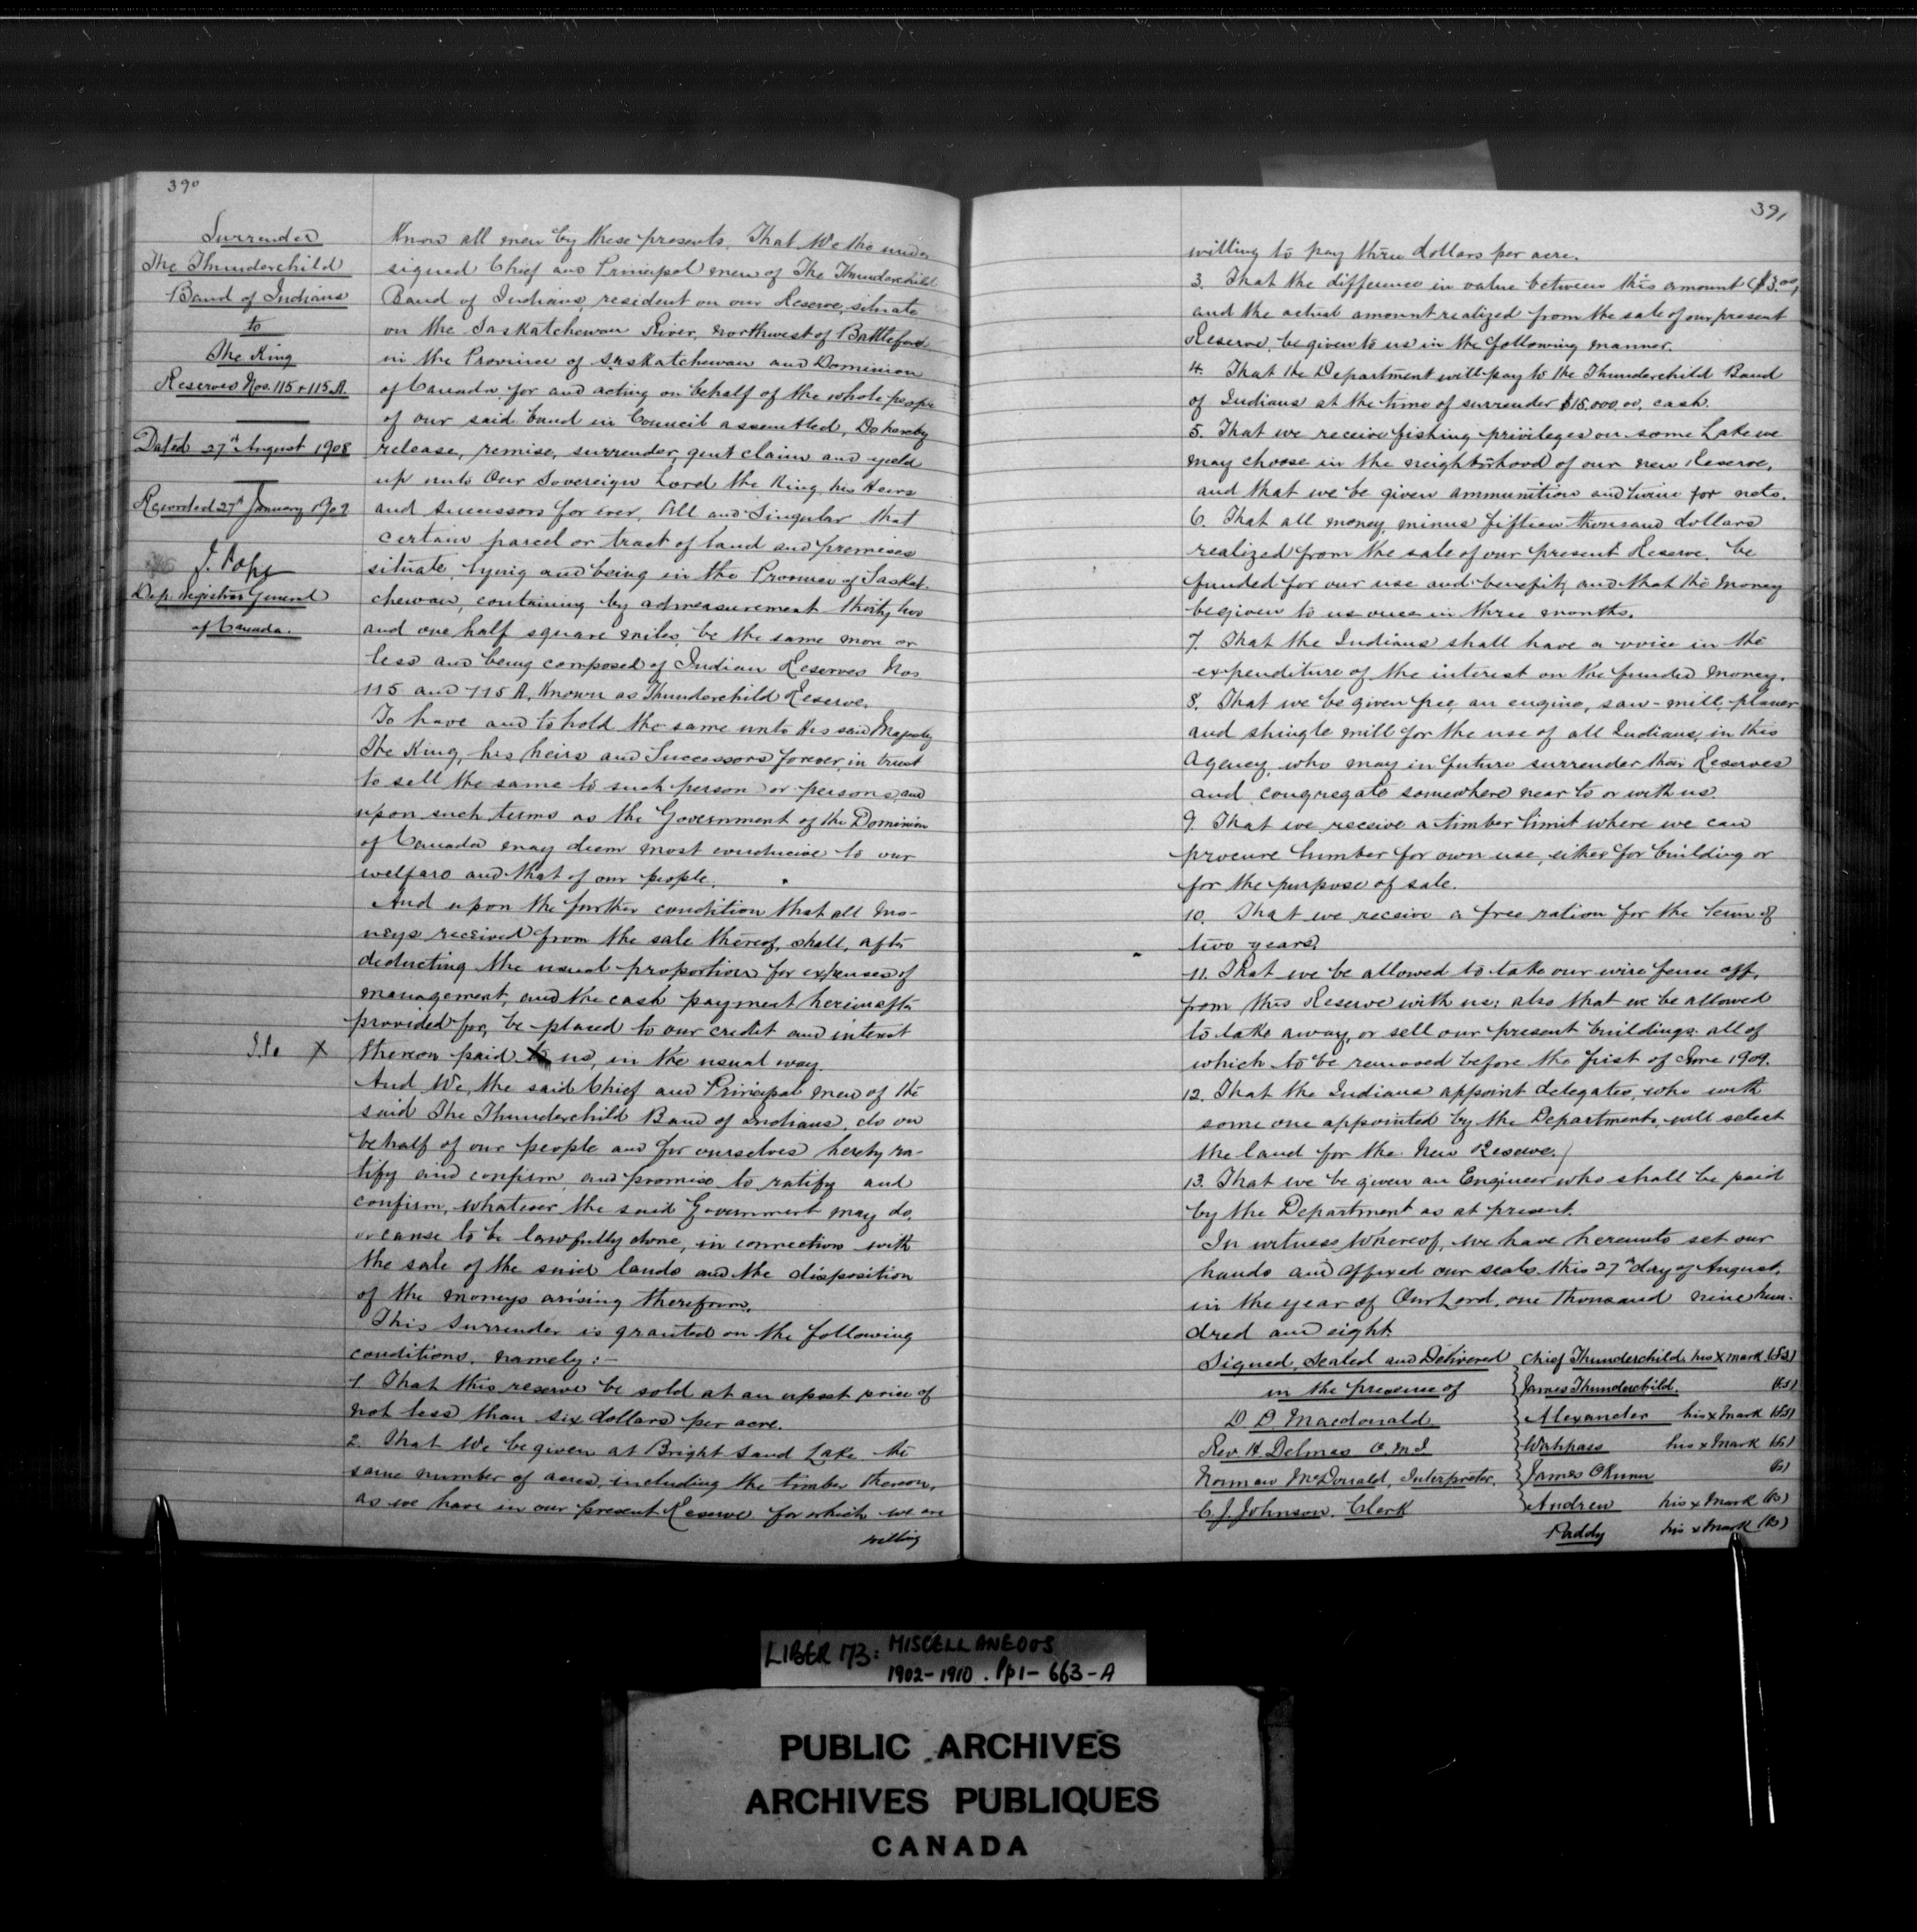 390
Surrender
The Thunderchild
Band of Indians
to
The King
Reserves Nos. 115 + 115 A.
Dated 27th August 1908
Recorded 27th January 1909
J. Pope
Dep. Registrar General
of Canada.
J.P. X
Know all men by these presents. That We the under
signed Chief and Principal men of The Thunderchild
Band of Indians, resident on our Reserve, situate
on the Saskatchewan River, northwest of Battleford
in the Province of Saskatchewan and Dominion
of Canada, for and acting on behalf of the whole people
of our said band in Council assembled, Do hereby
release, remise, surrender, quit claim and yield
up unto Our Sovereign Lord the King, his Heirs
and Successors for ever, All and Singular that
certain parcel or tract of land and premises
situate, lying and being in the Province of Saskat-
chewan, containing by admeasurement thirty two
and one half square miles, be the same more or
less and being composed of Indian Reserves Nos
115 and 115 A, Known as Thunderchild Reserve.
To have and to hold the same unto His said Majesty
The King, his heirs and Successors forever, in trust
to sell the same to such person or persons, and
upon such terms as the Government of the Dominion
of Canada may deem most conducive to our
welfare and that of our people.
And upon the further condition that all mo-
neys received from the sale thereof, shall, after
deducting the usual proportion for expenses of
management, and the cash payment hereinafter
provided for, be placed to our credit and interest
thereon paid to us, in the usual way.
And We, the said Chief and Principal men of the
said The Thunderchild Band of Indians, do on
behalf of our people and for ourselves hereby ra-
tify and confirm, and promise to ratify and
confirm, whatever the said Government may do,
or cause to be lawfully done, in connection with
the sale of the said lands and the disposition
of the moneys arising therefrom.
This Surrender is granted on the following
conditions, namely:-
1. That this reserve be sold at an upset price of
not less than six dollars per acre.
2. That We be given at Bright Sand Lake the
same number of acres, including the timber thereon,
as we have in our present Reserve for which we are
willing
391
willing to pay three dollars per acre.
3. That the difference in value between this amount ($3.00)
and the actual amount realized from the sale of our present
Reserve, be given to us in the following manner.
4. That the Department will pay to the Thunderchild Band
of Indians at the time of surrender $15,000.00, cash.
5. That we receive fishing privileges on some Lake we
may choose in the neighborhood of our new Reserve,
and that we be given ammunition and twine for nets.
6. That all money, minus fifteen thousand dollars
realized from the sale of our present Reserve, be
funded for our use and benefit, and that the money
be given to us once in three months.
7. That the Indians shall have a voice in the
expenditure of the interest on the funded money.
8. That we be given free, an engine, saw-mill, planer
and shingle mill for the use of all Indians, in this
Agency, who may in future surrender their Reserves
and congregate somewhere near to or with us.
9. That we receive a timber limit where we can
procure lumber for own use, either for building or
for the purpose of sale.
10. That we receive a free ration for the term of
two years.
11. That we be allowed to take our wire fence off,
from this Reserve with us; also that we be allowed
to take away, or sell our present buildings all of
which to be removed before the first of June 1909.
12. That the Indians appoint delegates, who with
some one appointed by the Department, will select
the land for the New Reserve.
13. That we be given an Engineer who shall be paid
by the Department as at present.
In witness Whereof, we have hereunto set our
hands and affixed our seals this 27th day of August,
in the year of Our Lord, one thousand nine hun-
dred and eight.
Signed, Sealed and Delivered Chief Thunderchild his X mark (LS)
in the presence of James Thunderchild. (LS)
D D. Macdonald Alexander his x mark (LS)
Rev. H. Delmas O.M.I Wahpass his x mark (LS)
Norman McDonald, Interpreter. James (LS)
C. J. Johnson. Clerk Andrew his x mark (LS)
Paddy his x mark (LS)
LIBER 173: MISCELLANEOUS
1902-1910. Pp1-663-A
PUBLIC ARCHIVES
ARCHIVES PUBLIQUES
CANADA